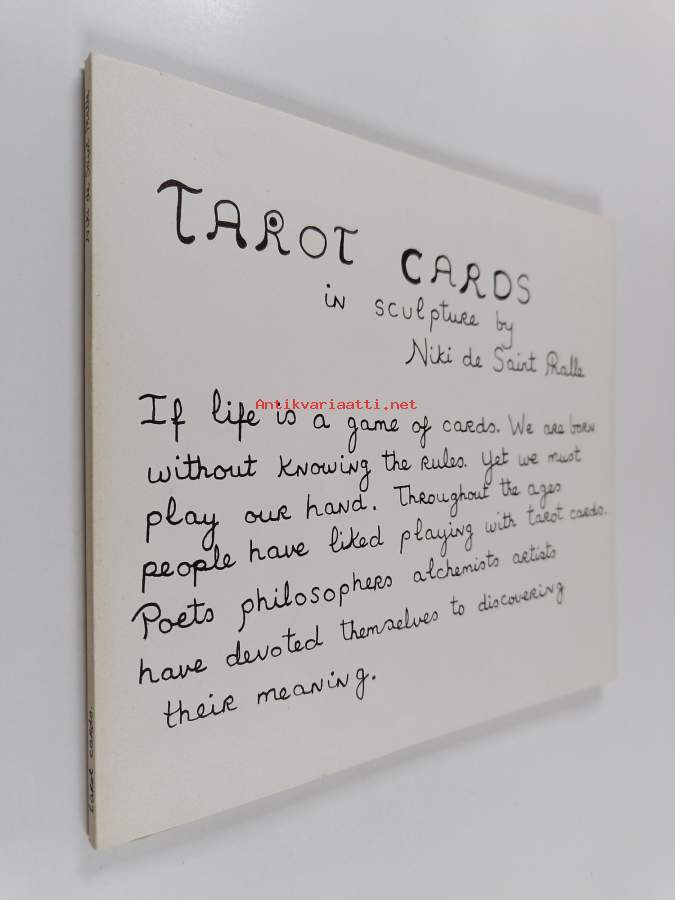 TAROT CARDS
in sculpture by
Niki de Saint Phalle
If life is a game of cards. We are born
without knowing the rules. yet we must
play our hand. Throughout the ages
people have liked playing with tarot cards.
Poets philosophers alchemists artists
have devoted themselves to discovering
their meaning.
Antikvariaatti.net
Tarot cards.
Niki de Saint Phalle